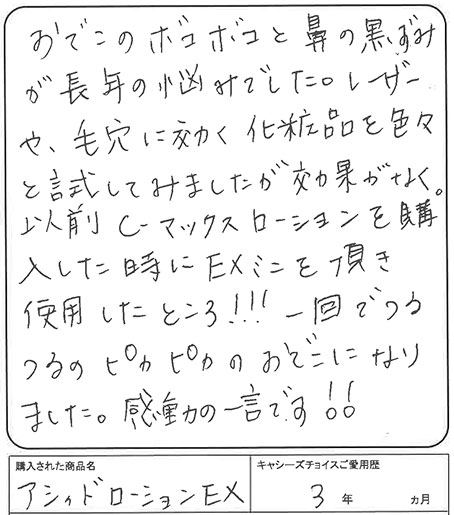 おでこのボコボコと鼻の黒ずみ
が長年の悩みでした。レーザー
や、毛穴に効く化粧品を色々
と試してみましたが効果がなく。
以前C-マックスローションを購
入した時にEXミニを頂き
使用したところ!!! 一回でつる
つるのピカピカのおでこになり
ました。感動の一言です!!
購入された商品名
キャシーズチョイスご愛用歴
アシィドローションEX
3年 ヵ月